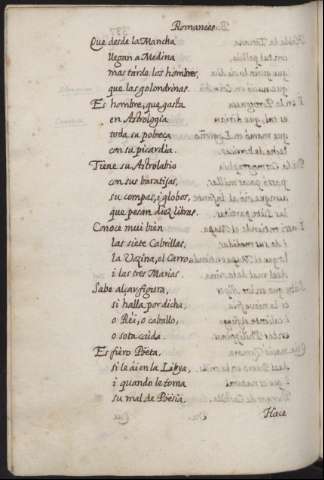 Romances
Que desde la Mancha
llegan a Medina
mas tarde los hombres,
que las golondrinas.
Es hombre, que gasta
en Astrologia
toda su pobreça
con su picardia.
Tiene su Astrolabio
con sus baratijas,
su compas, i globos,
que pesan diez libras.
Conoce mui bien
las siete Cabrillas,
la Vozina, el Carro,
i las tres Marias.
Sabe alçar figura,
si halla por dicha,
o Rei, o caballo,
o sota caida.
Es fiero Poëta,
si le ái en la Libya,
i quando le toma
su mal de Poësia.
Hace